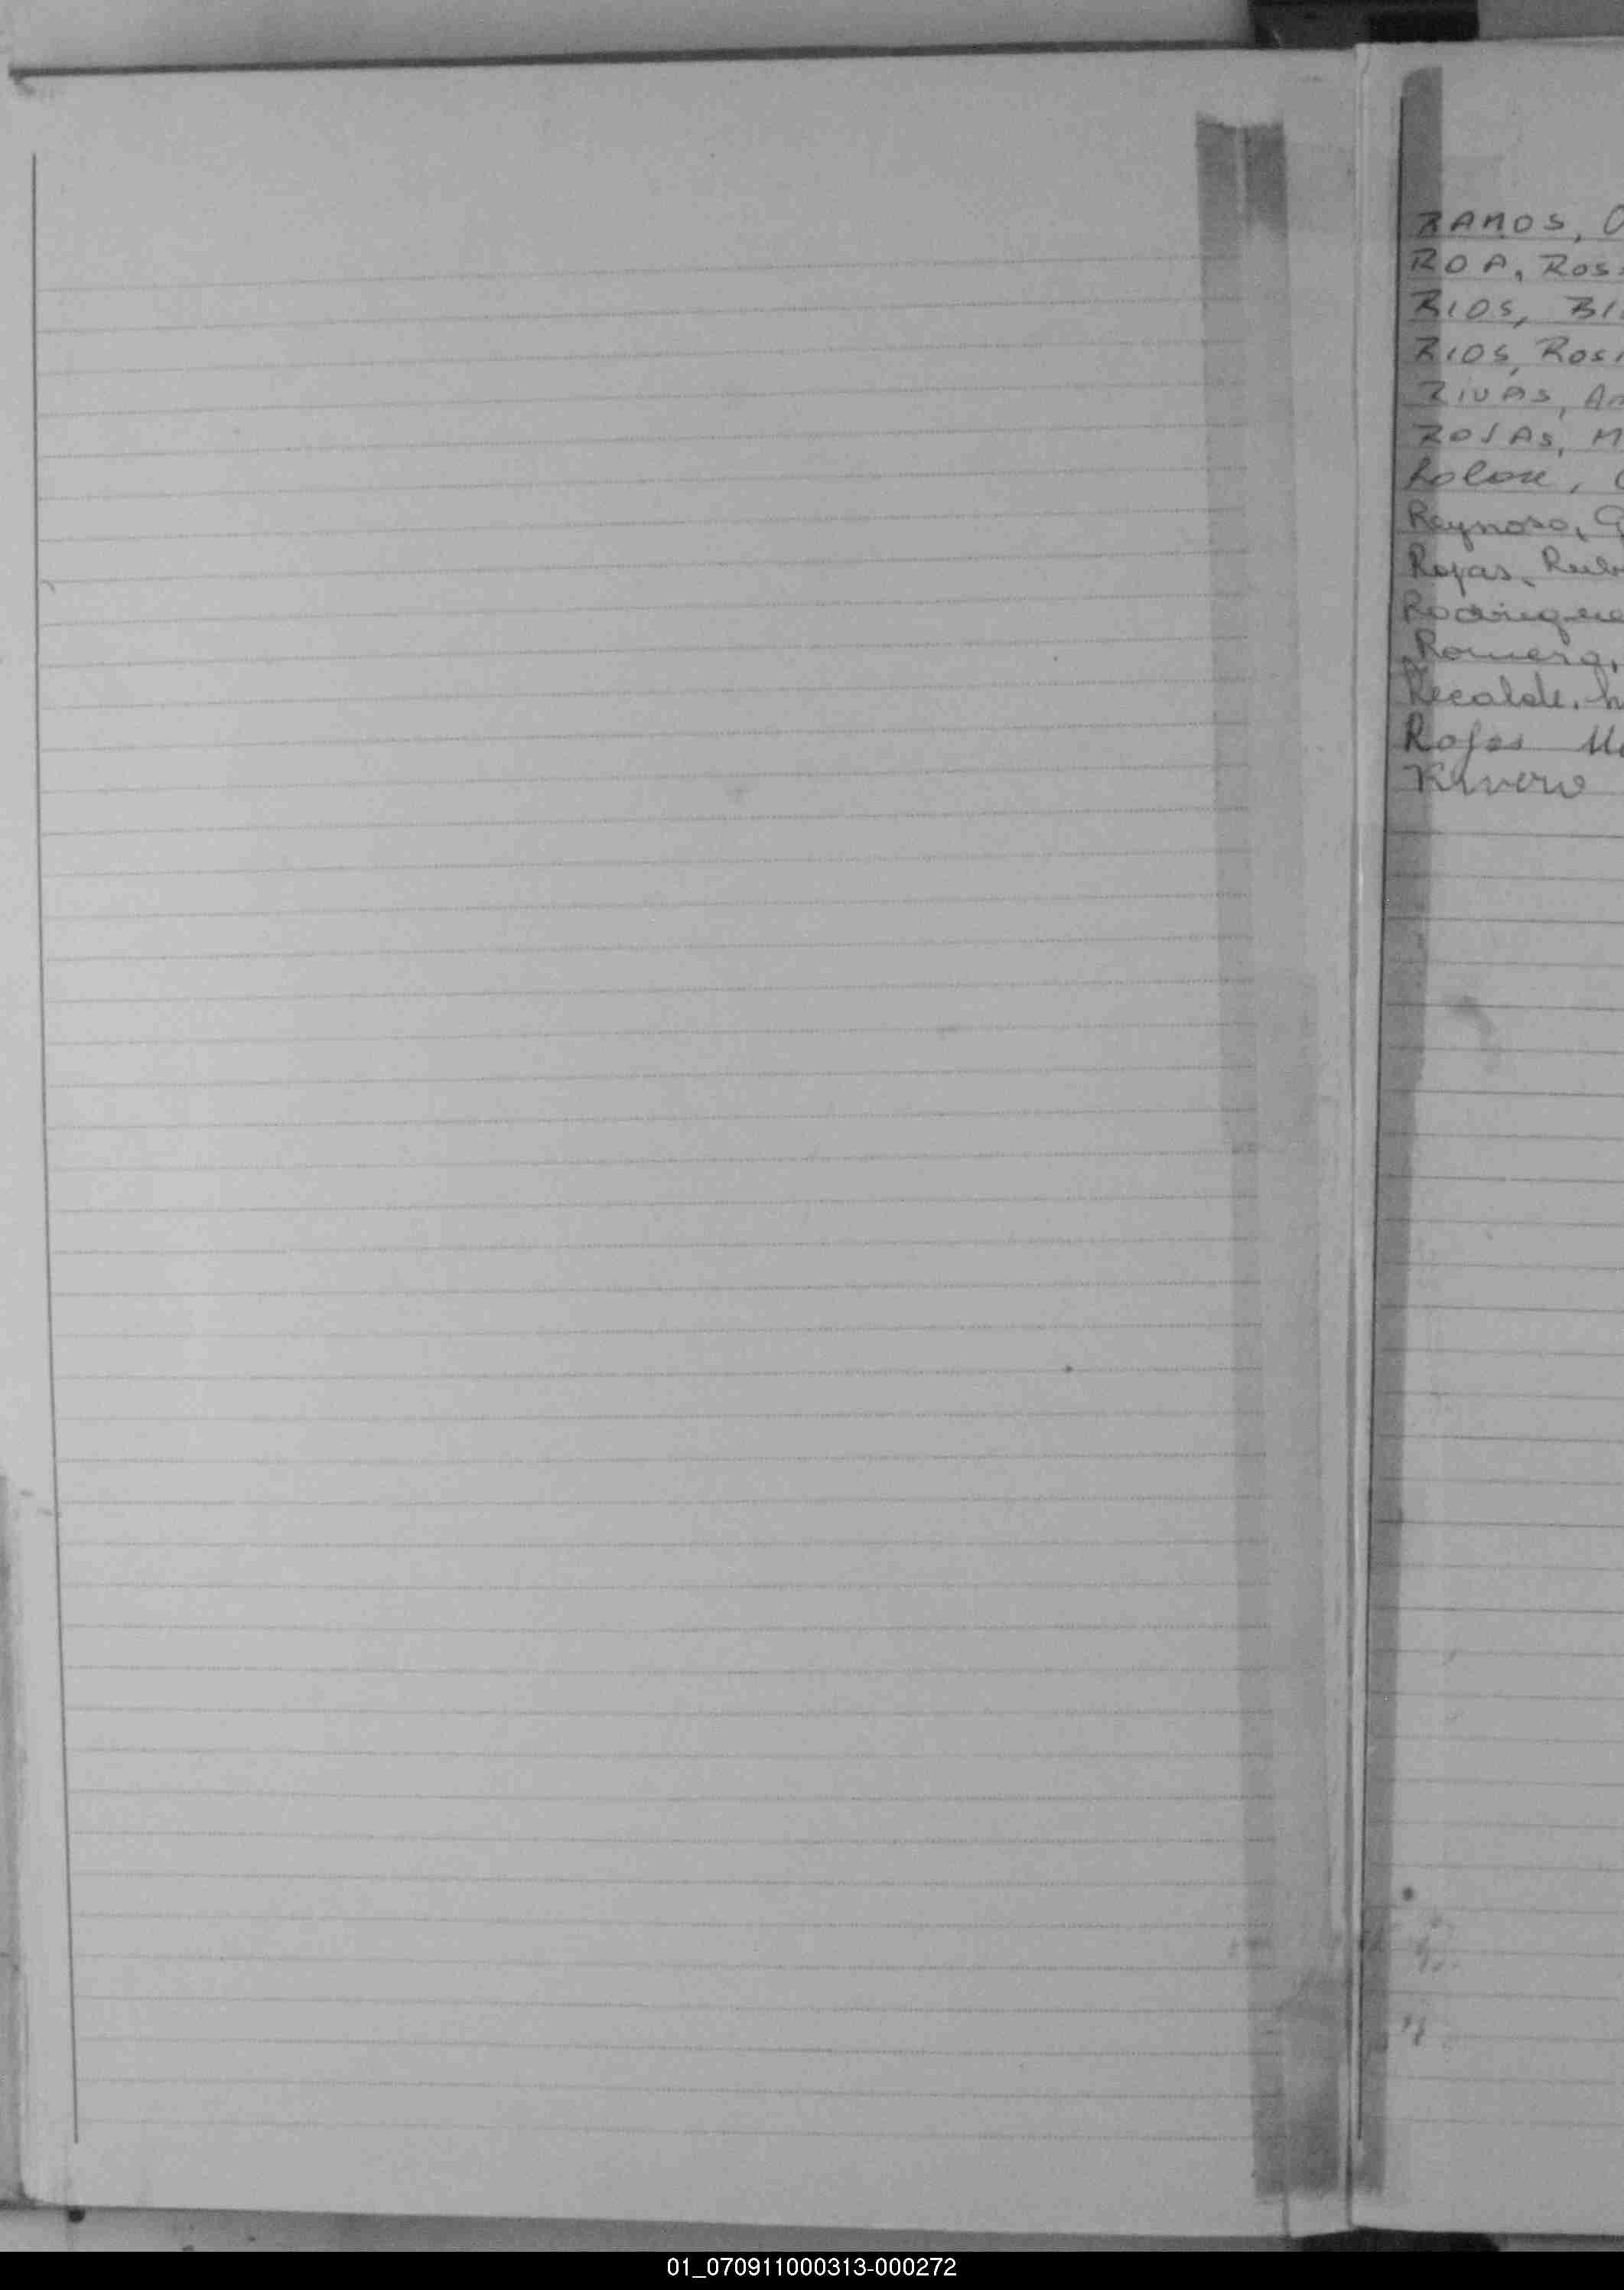 RAMOS,
ROA, Ros
RIOS, BI
RIOS, Rosi
RIVAS, An
ROJAS, M
Reynoso, G
Rojas, Rub
Rodrigue
Romero,
Recalde,
Rojas Ma
Rivero
01_070911000313-000272